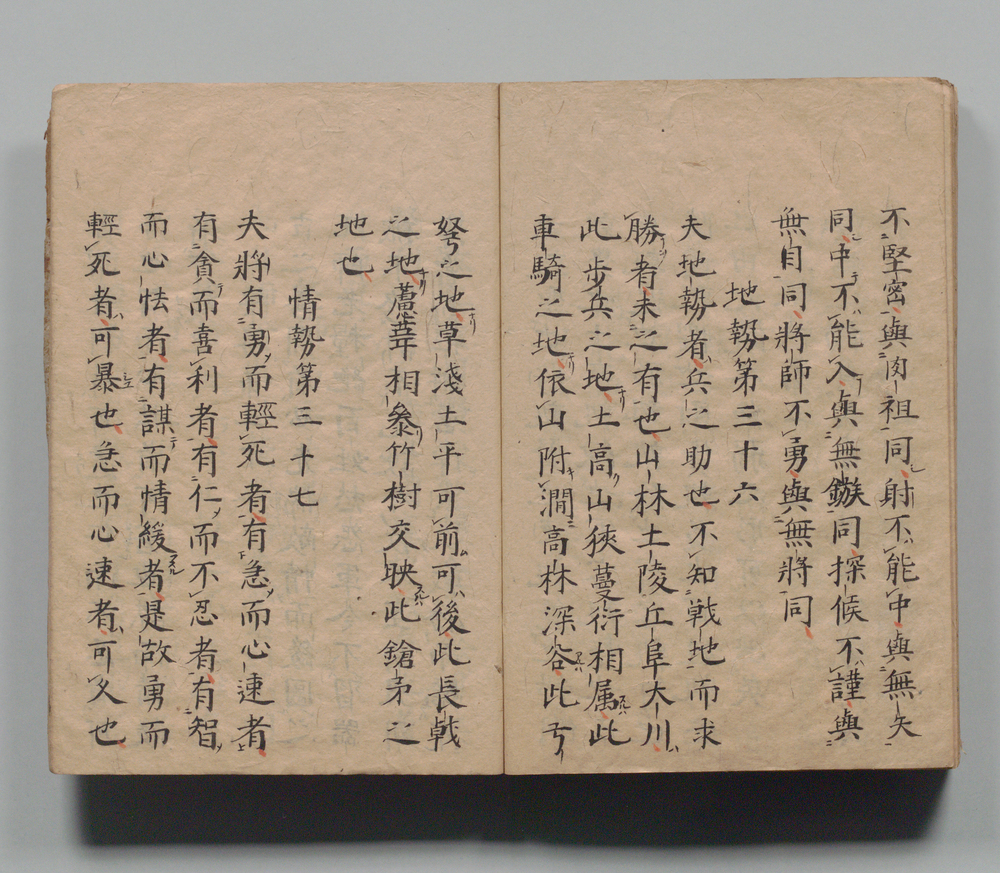 不堅密與肉袒同射不能中與無矢
同中不能入與無鏃同探候不謹與
無目同將師不勇與無將同
地勢第三十六
夫地勢者兵之助也不知戦地而求
勝者未之有也山林土陵丘阜大川
此歩兵之地土高山狹蔓衍相属此
車騎之地依山附澗高林深谷此弓
弩之地草淺土平可前可後此長戟
之地蘆葦相參竹樹交映此鎗矛之
地也
情勢第三十七
夫將有勇而輕死者有急而心速者
有貪而喜利者有仁而不忍者有智
而心怯者有謀而情緩者是故勇而
輕死者可暴也急而心速者可久也